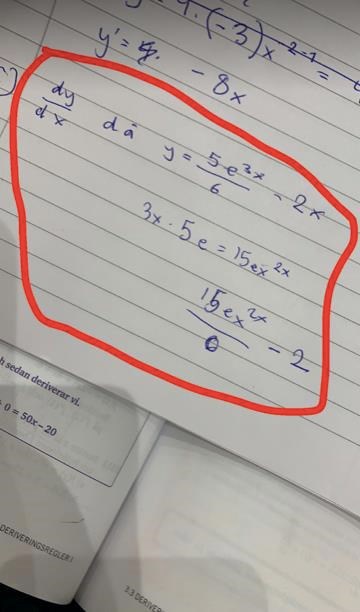 y' = 4. · (-3)x²⁻¹ =
- 8x
dy/dx då y = 5e³ˣ/6 - 2x
3x · 5e = 15ex²ˣ
15ex²ˣ/6 - 2
sedan deriverar vi.
0 = 50x - 20
DERIVERINGSREGLER I
3.3 DERIVERI